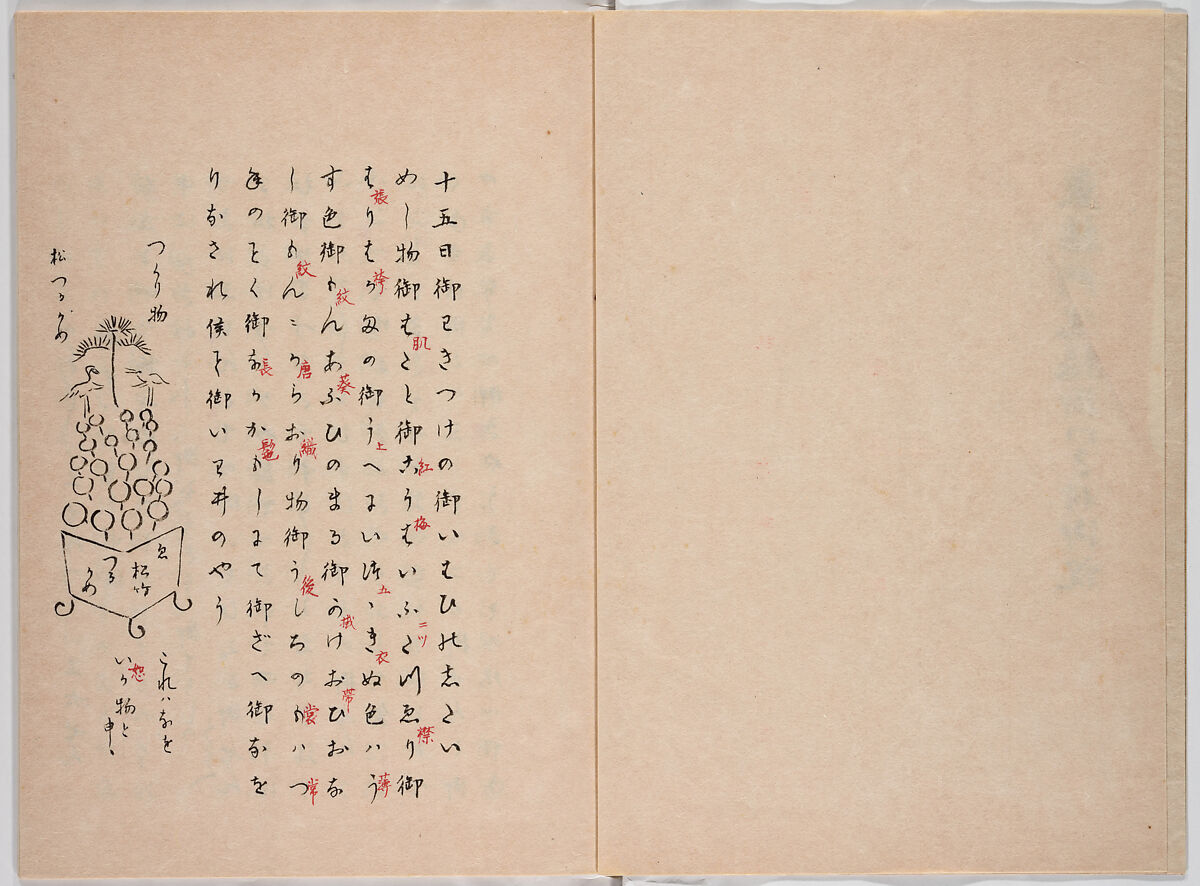 十五日御ワきつけの御いはひの志たい
めし物御はたと御こうはいふた川ゑり御
肌 紅 梅 二ツ 襟
はりはかまの御うへにい徒ゝきぬ色ハう
張 袴 上 五 衣 薄
す色御もんあふひのまる御かけおひおな
紋 葵 帯
し御もんニからおり物御うしろのもハつ
紋 唐 織 後 裳 常
ねのことく御なかかもしにて御ざへ御なを
長 鬘
りなされ候て御いワ井のやう
つくり物
松つるかめ
ゑ
松竹
つる
かめ
これハなを
いか物と
申